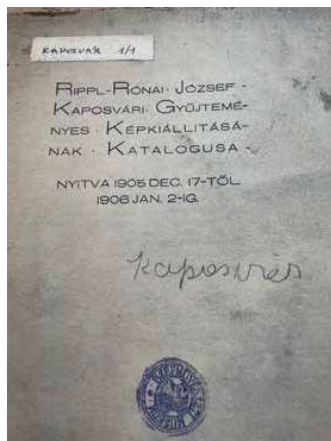 KAPOSVÁR 1/1
RIPPL-RÓNAI · JÓZSEF ·
KAPOSVÁRI · GYŰJTEMÉ-
NYES · KÉPKIÁLLITÁSÁ-
NAK · KATALOGUSA ·
NYITVA 1905 DEC. 17-TŐL
1906 JAN. 2-IG.
Kaposvár